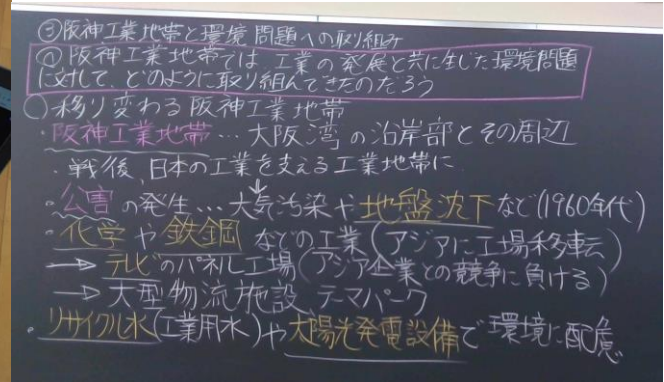 ③阪神工業地帯と環境問題への取り組み
阪神工業地帯では、工業の発展と共に生じた環境問題
に対して、どのように取り組んできたのだろう
○移り変わる阪神工業地帯
・阪神工業地帯…大阪湾の沿岸部とその周辺
・戦後、日本の工業を支える工業地帯に
↓
・公害の発生…大気汚染や地盤沈下など(1960年代)
・化学や鉄鋼などの工業(アジアに工場移転)
→テレビのパネル工場(アジア企業との競争に負ける)
→大型物流施設、テーマパーク
・リサイクル水(工業用水)や太陽光発電設備で環境に配慮